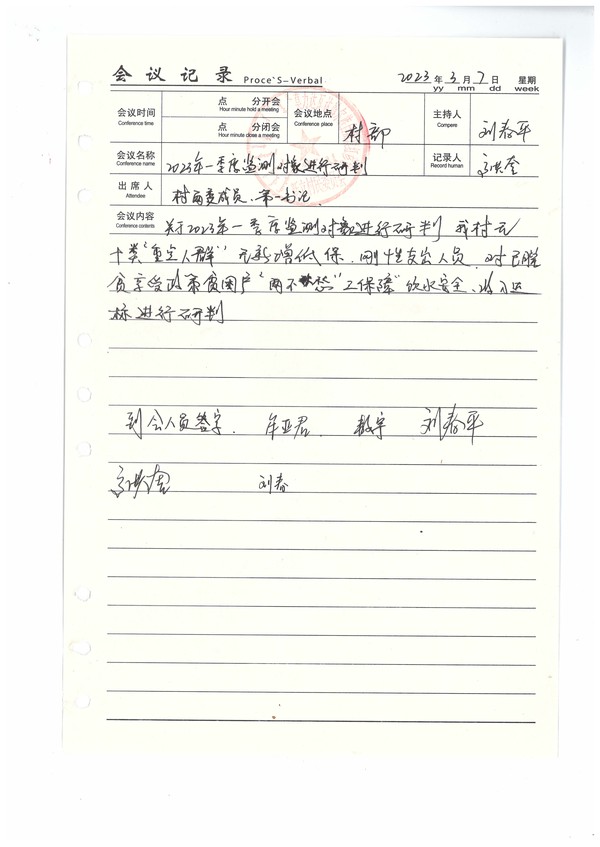 会议记录 Proce`S-Verbal 2023 年 3 月 7 日 星期
yy mm dd week
会议时间 Conference time 点 分开会 Hour minute hold a meeting
点 分闭会 Hour minute close a meeting
会议地点 Conference place 村部
主持人 Compere 刘春平
会议名称 Conference name 2023年一季度监测对象进行研判
记录人 Record human
出席人 Attendee 村两委成员、第一书记
会议内容 Conference contents 关于2023年一季度监测对象进行研判 我村无
十类"重点人群" 无新增低保、刚性支出人员 对已脱
贫享受政策贫困户"两不愁""三保障"饮水安全、收入达
标进行研判
到会人员签字、 牟亚君、 刘春平
刘春